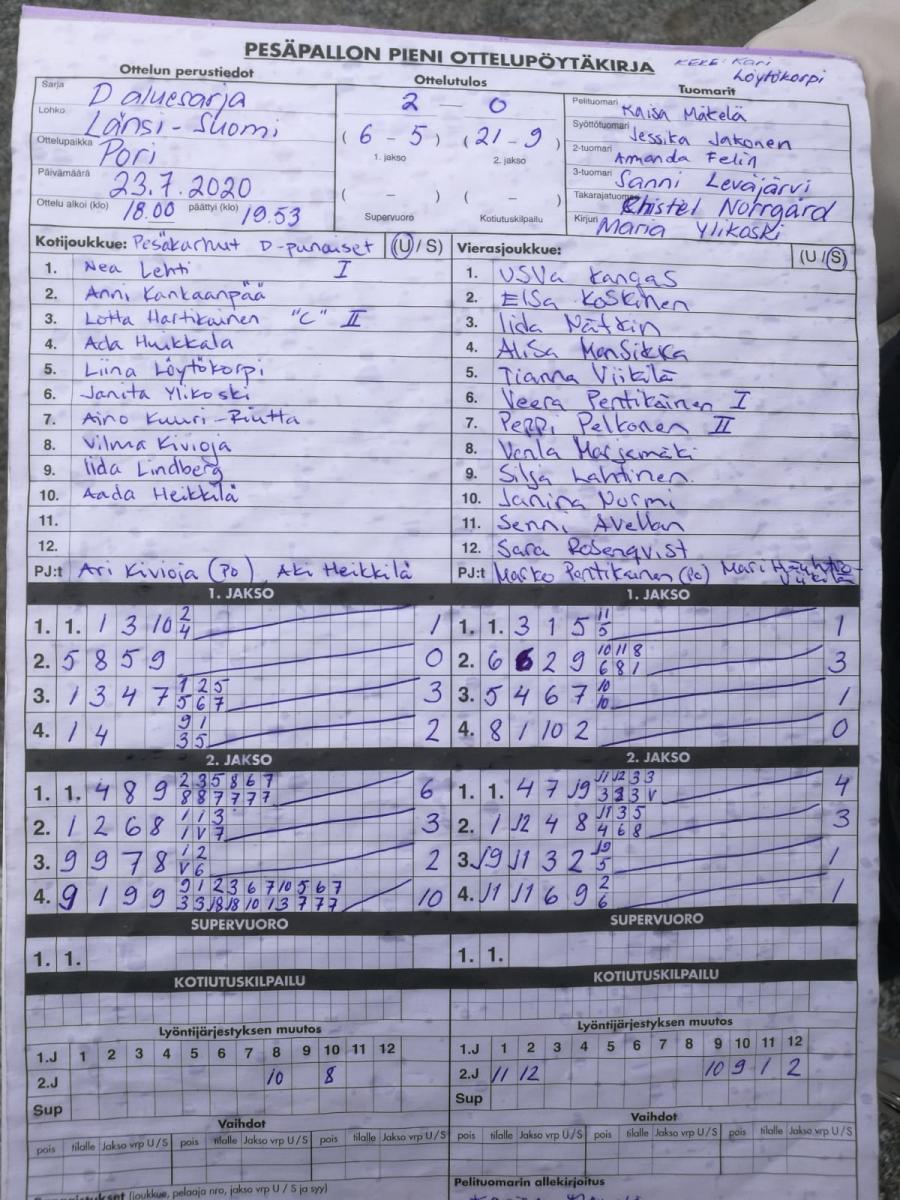 PESÄPALLON PIENI OTTELUPÖYTÄKIRJA
KEKE: Kari Löytökorpi
Ottelun perustiedot
Sarja D aluesarja
Lohko Länsi-Suomi
Ottelupaikka Pori
Päivämäärä 23.7.2020
Ottelu alkoi (klo) 18.00 päättyi (klo) 19.53
Ottelutulos
2 — 0
( 6 - 5 ) ( 21 - 9 )
1. jakso 2. jakso
( - ) ( - )
Supervuoro Kotiutuskilpailu
Tuomarit
Pelituomari Kaisa Mäkelä
Syöttötuomari Jessika Jakonen
2-tuomari Amanda Felin
3-tuomari Sanni Leväjärvi
Takarajatuomari Christel Norrgård
Kirjuri Maria Ylikoski
Kotijoukkue: Pesäkarhut D-punaiset (U / S)
1. Nea Lehti I
2. Anni Kankaanpää
3. Lotta Hartikainen "C" II
4. Ada Huikkala
5. Liina Löytökorpi
6. Janita Ylikoski
7. Aino Kuuri-Riutta
8. Vilma Kivioja
9. Iida Lindberg
10. Aada Heikkilä
11.
12.
PJ:t Ari Kivioja (Po), Aki Heikkilä
Vierasjoukkue: (U / S)
1. Usva Kangas
2. Elsa Koskinen
3. Iida Nätkin
4. Alisa Mansikka
5. Tianna Viikilä
6. Veera Pentikäinen I
7. Peppi Pelkonen II
8. Venla Marjamäki
9. Silja Lahtinen
10. Janina Nurmi
11. Senni Avellan
12. Sara Rosenqvist
PJ:t Marko Pentikäinen (Po) Mari
1. JAKSO
1. 1. 1 3 10 2 1
4
2. 5 8 5 9 0
3. 1 3 4 7 1 2 5 3
5 6 7
4. 1 4 9 1 2
3 5
1. JAKSO
1. 1. 3 1 5 11 1
5
2. 6 6 2 9 10 11 8 3
6 8 1
3. 5 4 6 7 10 1
10
4. 8 1 10 2 0
2. JAKSO
1. 1. 4 8 9 2 3 5 8 6 7 6
8 8 7 7 7 7
2. 1 2 6 8 1 1 3 3
1 V 7
3. 9 9 7 8 1 2 2
V 6
4. 9 1 9 9 9 1 2 3 6 7 10 5 6 7 10
2. JAKSO
1. 1. 4 7 J9 J1 J2 3 3 4
3 3 3 V
2. 1 J2 4 8 J1 3 5 3
4 6 8
3. J9 J1 3 2 J9 1
5
4. J1 J1 6 9 2 1
6
SUPERVUORO
1. 1.
SUPERVUORO
1. 1.
KOTIUTUSKILPAILU
KOTIUTUSKILPAILU
Lyöntijärjestyksen muutos
1.J 1 2 3 4 5 6 7 8 9 10 11 12
2.J 10 8
Sup
Lyöntijärjestyksen muutos
1.J 1 2 3 4 5 6 7 8 9 10 11 12
2.J 11 12 10 9 1 2
Sup
Vaihdot
pois tilalle Jakso vrp U / S pois tilalle Jakso vrp U / S pois tilalle Jakso vrp U / S
Vaihdot
pois tilalle Jakso vrp U / S pois tilalle Jakso vrp U / S pois tilalle Jakso vrp U / S
(joukkue, pelaaja nro, jakso vrp U / S ja syy)
Pelituomarin allekirjoitus